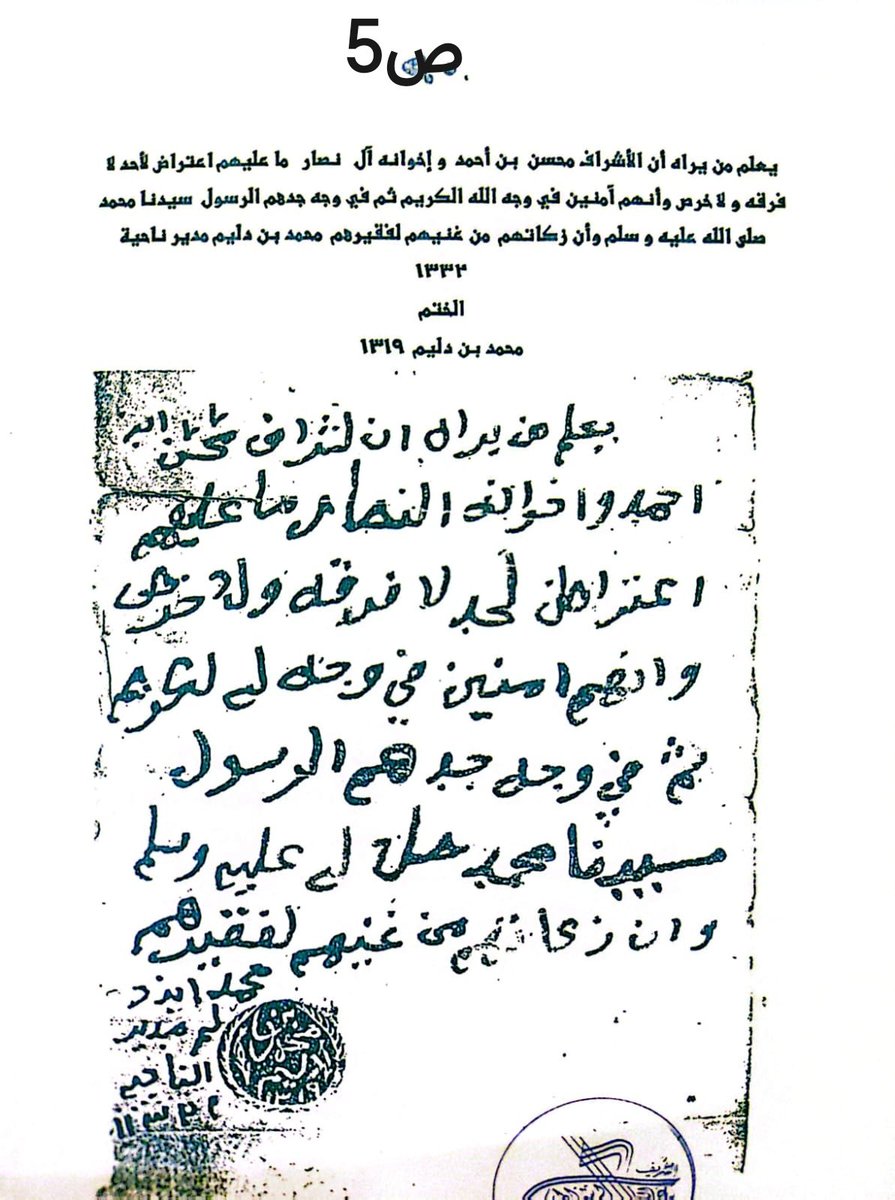 ص5
يعلم من يراه أن الأشراف محسن بن أحمد و إخوانه آل نصار ما عليهم اعتراض لأحد لا
فرقه و لا خرص وأنهم آمنين في وجه الله الكريم ثم في وجه جدهم الرسول سيدنا محمد
صلى الله عليه و سلم وأن زكاتهم من غنيهم لفقيرهم محمد بن دليم مدير ناحية
١٣٣٢
الختم
محمد بن دليم ١٣١٩
يعلم من يراه ان لشراف محسن ابن
احمد واخوانه النصار ما عليهم
اعتراض لحد لا فرقه ولا خرص
وانهم امنين في وجه الله لكريم
ثم في وجه جدهم الرسول
سيدنا محمد صلى الله عليه وسلم
وان زكاتهم من غنيهم لفقيرهم
محمد ابن د
ليم مدير
الناحيه
١٣٣٢
الشريف